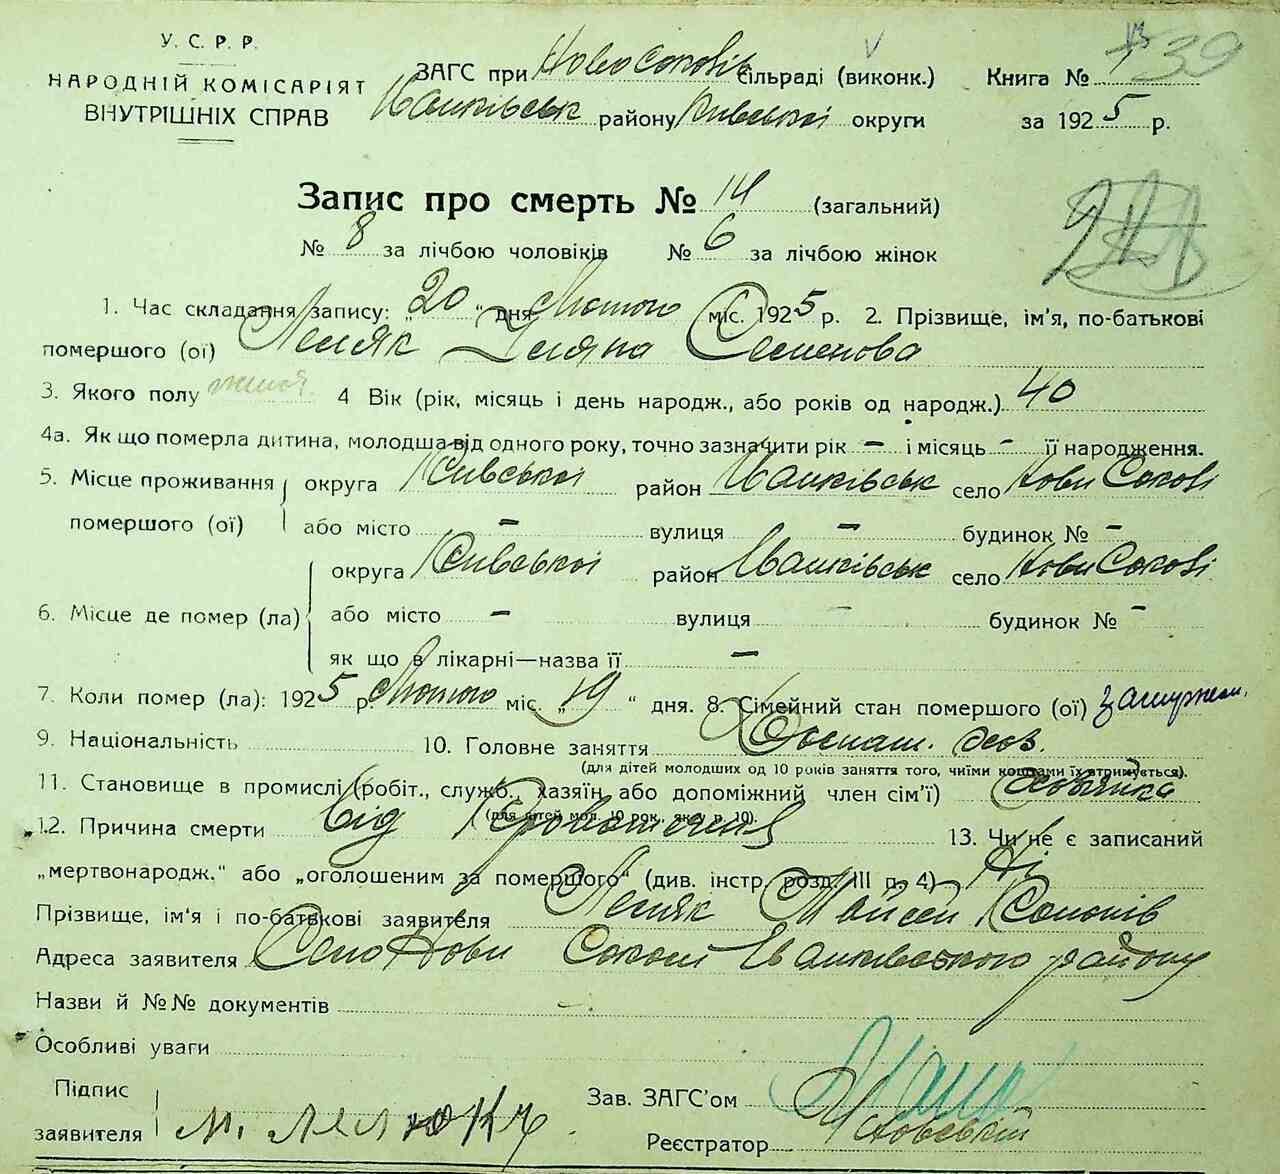 У. С. Р. Р.
НАРОДНІЙ КОМІСАРІЯТ
ВНУТРІШНІХ СПРАВ
ЗАГС при Ново Соковій сільраді (виконк.)
Іванківськ району Київської округи
Книга № 39
за 1925 р.
Запис про смерть № 14 (загальний)
№ 8 за лічбою чоловіків № 6 за лічбою жінок
1. Час складання запису: „20“ дня Лютого міс. 1925 р. 2. Прізвище, ім'я, по-батькові
помершого (ої) Уляна Семенова
3. Якого полу жіноч. 4 Вік (рік, місяць і день народж., або років од народж.) 40
4а. Як що померла дитина, молодша від одного року, точно зазначити рік – і місяць – її народження.
5. Місце проживання округа Київської район Іванківськ село Нови Сокові
помершого (ої) або місто – вулиця – будинок № –
округа Київської район Іванківськ село Нови Сокові
6. Місце де помер (ла) або місто – вулиця – будинок № –
як що в лікарні—назва її –
7. Коли помер (ла): 1925 р. Лютого міс. „19“ дня. 8. Сімейний стан помершого (ої) замужем.
9. Національність 10. Головне заняття
(для дітей молодших од 10 років заняття того, чиїми коштами їх втримується).
11. Становище в промислі (робіт., служб., хазяїн або допоміжний член сім'ї)
(для дітей мол. 10 рок. якзу р. 10).
12. Причина смерти від Кровотечия 13. Чи не є записаний
„мертвонародж.“ або „оголошеним за помершого“ (див. інстр. розд. III п. 4) Ні
Прізвище, ім'я і по-батькові заявителя Мойсей
Адреса заявителя Село Нови Соколи Іванківского району
Назви й №№ документів
Особливі уваги
Підпис
заявителя М.
Зав. ЗАГС'ом
Реєстратор